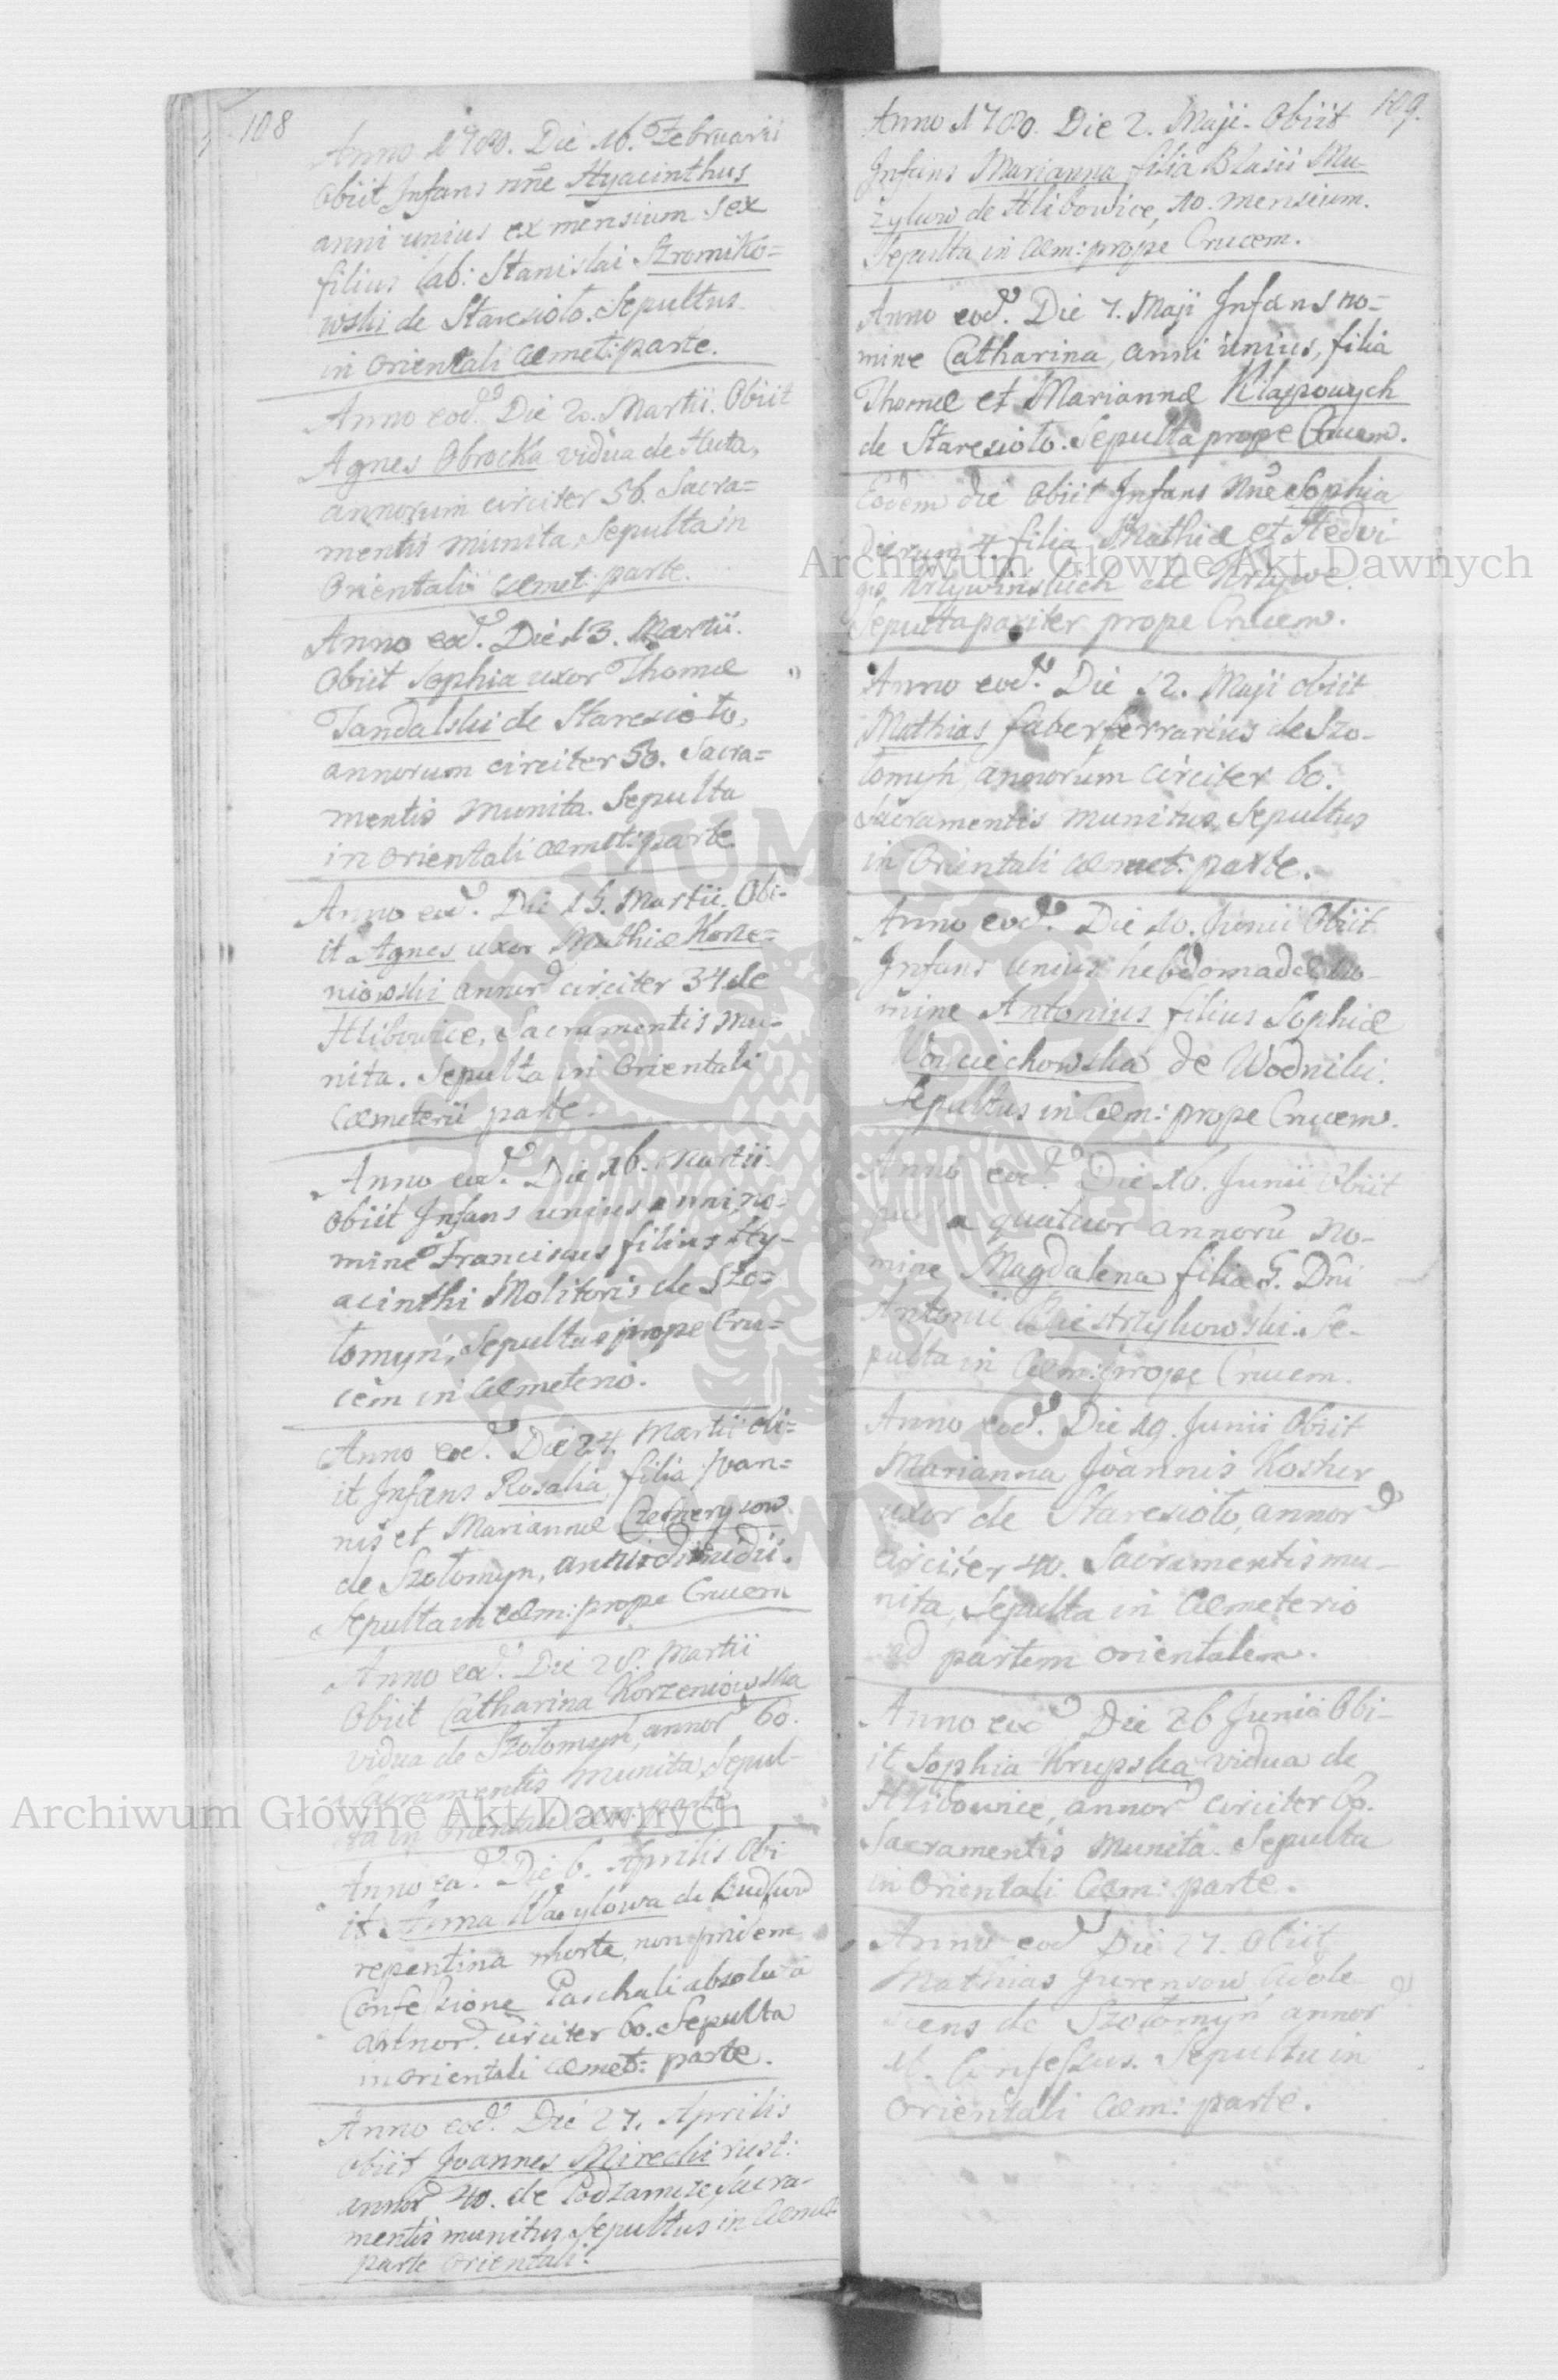 108
Anno 1780. Die 16. Februarii
Obiit Infans nñe Hyacinthus
anni unius ex mensium sex
filius lab: Stanislai Szromko=
wski de Staresioło. Sepultus
in orientali cæmet: parte.
Anno eod. Die 20. Martii. Obiit
Agnes Obrocka vidua de Huta,
annorum circiter 56. Sacra=
mentis munita, Sepulta in
Orientali cæmet: parte.
Anno eod. Die 13. Martii.
Obiit Sophia uxor Thomæ
Tandalski de Staresioło,
annorum circiter 50. Sacra=
mentis munita. Sepulta
in orientali cæmet: parte.
Anno eod. Die 15. Martii. Obi-
it Agnes uxor Mathiæ Korze=
niowski annor circiter 34 de
Hlibowice, Sacramentis mu-
nita. Sepulta in Orientali
Cæmeterii parte.
Anno eod. Die 16. Martii.
Obiit Infans unius anni, no=
mine Franciscus filius Hy-
acinthi Molitoris de Szo=
łomyń, Sepultus prope Cru=
cem in Cæmeterio.
Anno eod. Die 24. Martii obi=
it Infans Rosalia, filia Joan=
nis et Mariannæ
de Szołomyn, anni dimidii.
Sepulta in cæm: prope Crucem
Anno eod. Die 28. Martii
Obiit Catharina Korzeniowska
vidua de Szołomyń, annor 60.
Sacramentis munita, Sepul-
ta in Orientali cæm: parte
Anno eod. Die 6. Aprilis Obi
it Anna Wasylowa de
repentina morte, non pridem
Confessione Paschali absoluta
annor. circiter 60. Sepulta
in orientali cæmet: parte.
Anno eod. Die 27. Aprilis
obiit Joannes Mirecki rust:
annor 40. de Podzamcze, Sacra-
mentis munitus, Sepultus in Cæmet:
parte Orientali.
109.
Anno 1780. Die 2. Maji. Obiit
Infans Marianna filia Blasii Mu-
zylow de Hlibowice, 10. mensium.
Sepulta in Cæm: prope Crucem.
Anno eod. Die 7. Maji Infans no=
mine Catharina, anni unius, filia
Thomæ et Mariannæ Kłapowych
de Staresioło. Sepulta prope Crucem.
Eodem die Obiit Infans Nñe Sophia
Dierum 4. filia Mathiæ et Hedvi
gis Krzywinskich de Krzywe.
Sepulta pariter prope Crucem.
Anno eod. Die 12. Maji obiit
Mathias faber ferrarius de Szo-
łomyń, annorum circiter 60.
Sacramentis munitus, Sepultus
in Orientali cæmet: parte.
Anno eod. Die 10. Junii Obiit
Infans unius hebdomadæ no-
mine Antonius filius Sophiæ
Woyciechowska de Wodniki.
Sepultus in Cæm: prope Crucem.
Anno eod. Die 16. Junii Obiit
quatuor annorũ no-
mine Magdalena filia G. Dñi
Antonii Se-
pulta in Cæm: prope Crucem.
Anno eod. Die 19. Junii Obiit
Marianna Joannis Kosher
uxor de Staresioło, annor
circiter 40. Sacramentis mu-
nita, Sepulta in Cæmeterio
ad partem orientalem.
Anno eod Die 26 Junii Obi-
it Sophia Krupska vidua de
Hlibowice, annor circiter 60.
Sacramentis munita. Sepulta
in Orientali Cæm: parte.
Anno eod Die 27. Obiit
Mathias Jurensow, adole
scens de Szołomyń, annor
16. Confessus. Sepultus in
Orientali Cæm: parte.
Archiwum Główne Akt Dawnych
Archiwum Główne Akt Dawnych
ARCHIWUM GŁÓWNE
AKT DAWNYCH